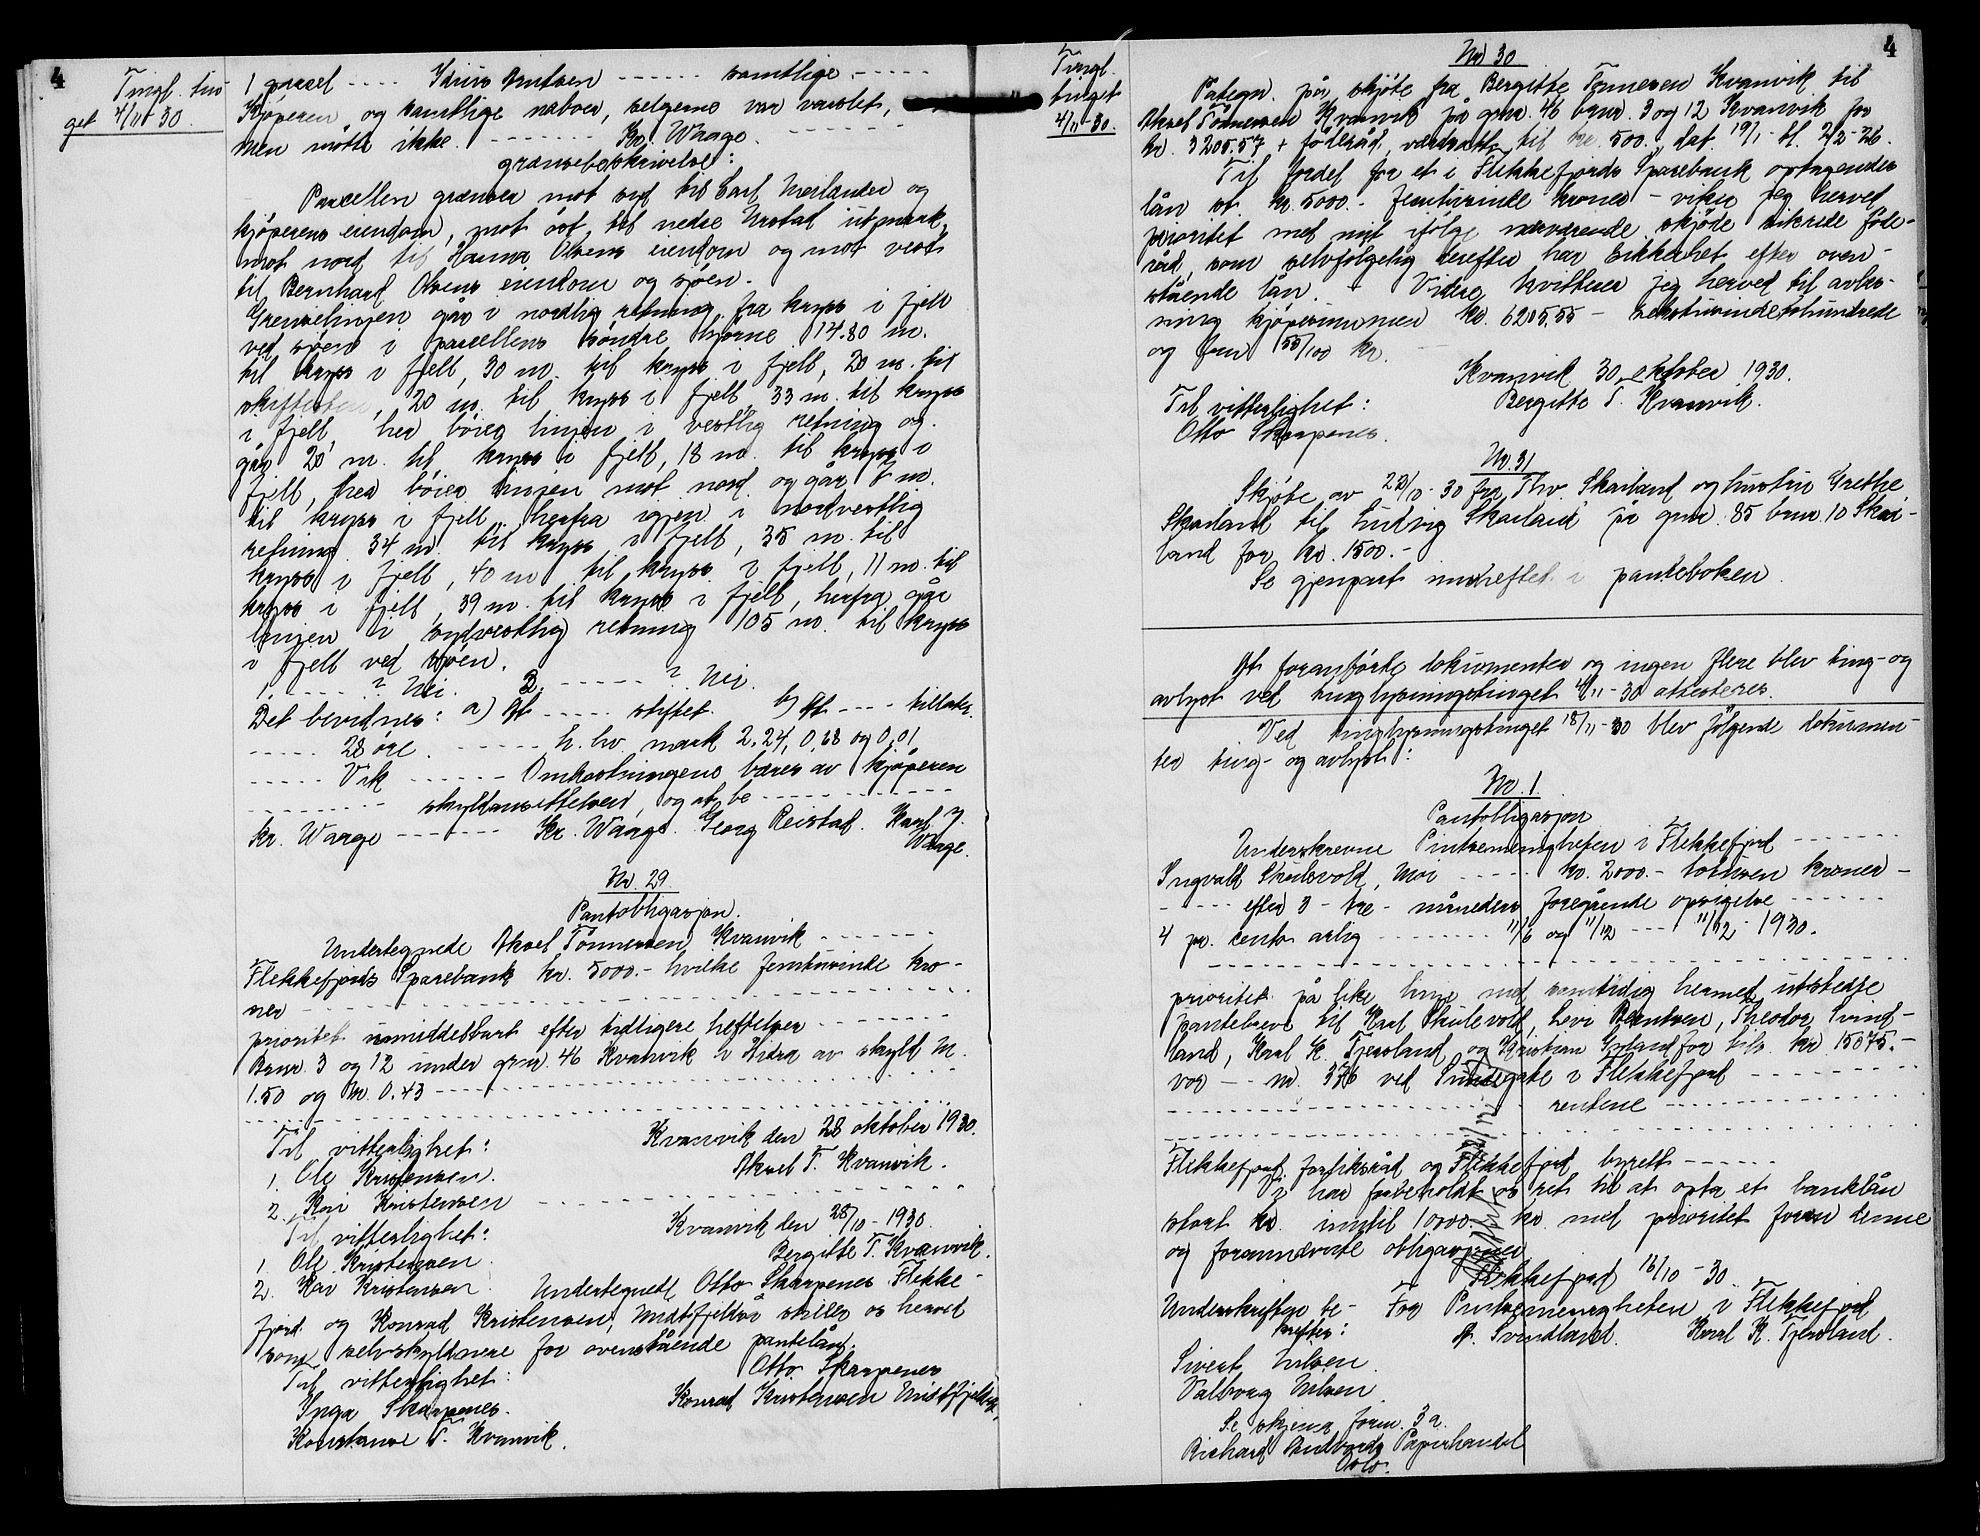 4
Tingl. tin
get 4/11 30.
1 parcel .... ------ samtlige -----
Kjøperen og samtlige naboer, selgerne var varslet,
men møtte ikke. ------ Kr. Waage. ------
grænsebeskrivelse:
Parcellen grænser mot syd til Carl and
kjøperens eiendom, mot øst til nedre utmark,
mot nord til Hanna Olsens eiendom og mot vest
til Bernhard Olsens eiendom og sjøen.
Grenselinjen går i nordlig retning fra kryss i fjell
ved sjøen i parcellens søndre hjørne 14.80 m.
til kryss i fjell, 30 m. til kryss i fjell, 20 m. til
skiftesten, 20 m. til kryss i fjell, 33 m. til kryss
i fjell, her bøier linjen i vestlig retning og
går 20 m. til kryss i fjell, 18 m. til kryss i
fjell, her bøier linjen mot nord og går 7 m.
til kryss i fjell, herfra igjen i nordvestlig
retning 34 m. til kryss i fjell, 35 m. til
kryss i fjell, 40 m til kryss i fjell, 11 m. til
kryss i fjell, 39 m. til kryss i fjell, herfra går
linjen i sydvestlig retning 105 m. til kryss
i fjell ved sjøen.
1. ------ ? Nei. 2. ------ ? Nei.
Det bevidnes: a) At ----- skiftet. b) At ---- tillats.
----- 28 øre ------ h. hv. mark 2.24, 0.68 og 0,01
----- Vik ------ Omkostningene bæres av kjøperen
-------- skyldansettelsen, og at be ------------
Kr. Waage ------ Kr. Waage. Georg Reistad. Karl M.
Waage.
Nr. 29
Pantobligasjon.
Undertegnede Aksel Tønnessen Kvanvik -------
Flekkefjords Sparebank kr. 5000.- hvilke femtusinde kro-
ner ------------
prioritet umiddelbart efter tidligere heftelser -------
Brnr. 3 og 12 under gnr. 46 Kvanvik i Hidra av skyld M.
1.50 og M. 0.43 ------------
Til vitterlighet: Kvanvik den 28 oktober 1930.
1. Ole Kristensen. Aksel T. Kvanvik.
2. Kari Kristensen ------------
Til vitterlighet: Kvanvik den 28/10 - 1930.
1. Ole Kristensen Bergitte T. Kvanvik.
2. Kari Kristensen Undertegnede Otto Skarpenes Flekke-
fjord og Konrad Kristensen, skiller os herved
som selvskyldnere for ovenstående pantelån.
Til vitterlighet: Otto Skarpenes
Inga Skarpenes. Konrad Kristensen
Konstanse T. Kvanvik.
4
Tingl.
tinget
4/11-30.
Nr 30
Påtegn. på skjøte fra Bergitte Tønnessen Kvanvik til
Aksel Tønnessen Kvanvik på gnr. 46 brnr. 3 og 12 Kvanvik for
kr. 3205.57 + føderåd, værdsatt til kr. 500. dat. 19/1- tl. 2/2-26.
Til fordel for et i Flekkefjords Sparebank optagendes
lån st. kr. 5000.- femtusinde kroner - viker jeg herved
prioritet med mit ifølge nærværende skjøte sikrede føde-
råd, som selvfølgelig derefter har sikkerhet efter oven-
stående lån. - Videre kvitterer jeg herved til avløs-
ning kjøpesummen kr. 6205.55 - sekstusindetohundrede
og fem 55/100 kr.
Kvanvik 30 oktober 1930.
Til vitterlighet: Bergitte T. Kvanvik.
Otto Skarpenes.
Nr. 31
Skjøte av 22/10-30 fra Thv. Skailand og hustru Grethe
Skailand til Ludvig Skailand på gnr. 85 brnr. 10 Skai-
land for kr. 1500.-
Se gjenpart innheftet i panteboken.
At foranførte dokumenter og ingen flere blev ting- og
avlyst ved tinglysningstinget 4/11-30 attesteres.
Ved tinglysningstinget 18/11-30 blev følgende dokumen-
ter ting- og avlyst:
Nr. 1.
Pantobligasjon
Underskrevne Pinsemenigheten i Flekkefjord -------
Ingvald Skulevold, Moi ----- kr. 2000.- totusen kroner -
----- efter 3 - tre - måneders foregående opsigelse ------
4 pr. cento årlig -------- 11/6 og 11/12 --- 11/12 - 1930.
------------
prioritet på like linje med samtidig hermed utstedte
pantebreve til Karl Skulevold, Levi Berntsen, Theodor Svind-
land, Karl K. Tjersland og Kristian for tils. kr. 15075.-
vor --- nr. 376 ved Sundegate i Flekkefjord ---------
------------ rentene ------------
------------
Flekkefjord forliksråd og Flekkefjord byrett ------
Vi har forbeholdt os ret til at opta et banklån
stort kr. inntil 10000. kr. med prioritet foran denne
og forannevnte obligasjoner
Flekkefjord 16/10-30
Underskriften be- For Pinsemenigheten i Flekkefjord
krefter: A. Svindland. Karl K. Tjersland.
Sivert Nilsen.
Valborg Nilsen
Se skjema form. 3a.
Richard Andvords Papirhandel
Oslo.